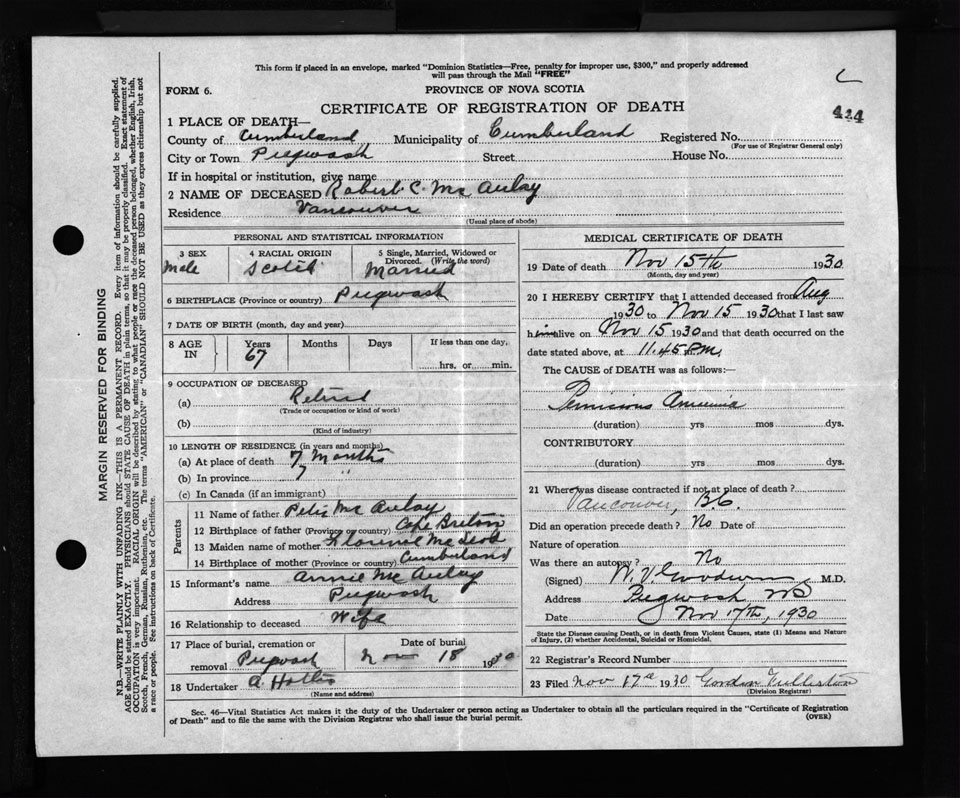 This form if placed in an envelope, marked "Dominion Statistics—Free, penalty for improper use, $300," and properly addressed
will pass through the Mail "FREE"
FORM 6.
PROVINCE OF NOVA SCOTIA
CERTIFICATE OF REGISTRATION OF DEATH
424
1 PLACE OF DEATH—
County of Cumberland Municipality of Cumberland Registered No.
(For use of Registrar General only)
City or Town Pugwash Street House No.
If in hospital or institution, give name
2 NAME OF DECEASED Robert C. McAulay
Residence Vancouver
(Usual place of abode)
PERSONAL AND STATISTICAL INFORMATION
3 SEX 4 RACIAL ORIGIN 5 Single, Married, Widowed or
Divorced. (Write the word)
Male Scotch Married
6 BIRTHPLACE (Province or country) Pugwash
7 DATE OF BIRTH (month, day and year)
8 AGE IN Years Months Days If less than one day,
67 hrs. or min.
9 OCCUPATION OF DECEASED
(a) Retired
(Trade or occupation or kind of work)
(b)
(Kind of industry)
10 LENGTH OF RESIDENCE (in years and months)
(a) At place of death 7 Months
(b) In province 7 "
(c) In Canada (if an immigrant)
Parents
11 Name of father Peter McAulay
12 Birthplace of father (Province or country) Cape Breton
13 Maiden name of mother Florence McLeod
14 Birthplace of mother (Province or country) Cumberland
15 Informant's name Annie McAulay
Address Pugwash
16 Relationship to deceased Wife
17 Place of burial, cremation or Date of burial
removal Pugwash Nov 18 1930
18 Undertaker A. Hollis
(Name and address)
MEDICAL CERTIFICATE OF DEATH
19 Date of death Nov 15th 1930
(Month, day and year)
20 I HEREBY CERTIFY that I attended deceased from Aug
1930 to Nov 15 1930 that I last saw
him alive on Nov 15 1930 and that death occurred on
date stated above, at 11.45 P.M.
The CAUSE of DEATH was as follows:—
Pernicious Anemia
(duration) yrs mos dys.
CONTRIBUTORY
(duration) yrs mos dys.
21 Where was disease contracted if not at place of death?
Vancouver, B.C.
Did an operation precede death? No Date of
Nature of operation
Was there an autopsy? No
(Signed) Goodwin M.D.
Address Pugwash NS
Date Nov 17th, 1930
State the Disease causing Death, or in death from Violent Causes, state (1) Means and Nature
of Injury, (2) whether Accidental, Suicidal or Homicidal.
22 Registrar's Record Number
23 Filed Nov 17th 1930 Gordon Fullerton
(Division Registrar)
Sec. 46—Vital Statistics Act makes it the duty of the Undertaker or person acting as Undertaker to obtain all the particulars required in the "Certificate of Registration
of Death" and to file the same with the Division Registrar who shall issue the burial permit.
(OVER)
MARGIN RESERVED FOR BINDING
N.B.—WRITE PLAINLY WITH UNFADING INK—THIS IS A PERMANENT RECORD. Every item of information should be carefully supplied.
AGE should be stated EXACTLY. PHYSICIANS should STATE CAUSE OF DEATH in plain terms, so that it may be properly classified. Exact statement of
OCCUPATION is very important. RACIAL ORIGIN will be described by stating to what people or race the deceased person belonged, whether English, Irish,
Scotch, French, German, Russian, Ruthenian, etc. The terms "AMERICAN" or "CANADIAN" SHOULD NOT BE USED as they express citizenship but not
a race or people. See instructions on back of Certificate.